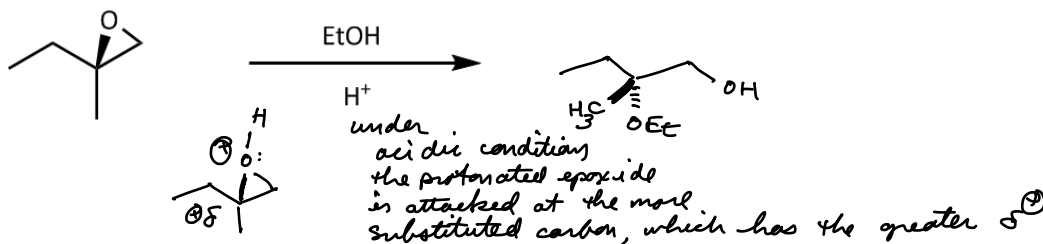 O
EtOH
H⁺
OH
H₃C
OEt
H
⊕ O:
⊕δ
under
acidic conditions
the protonated epoxide
is attacked at the more
substituted carbon, which has the greater δ⊕